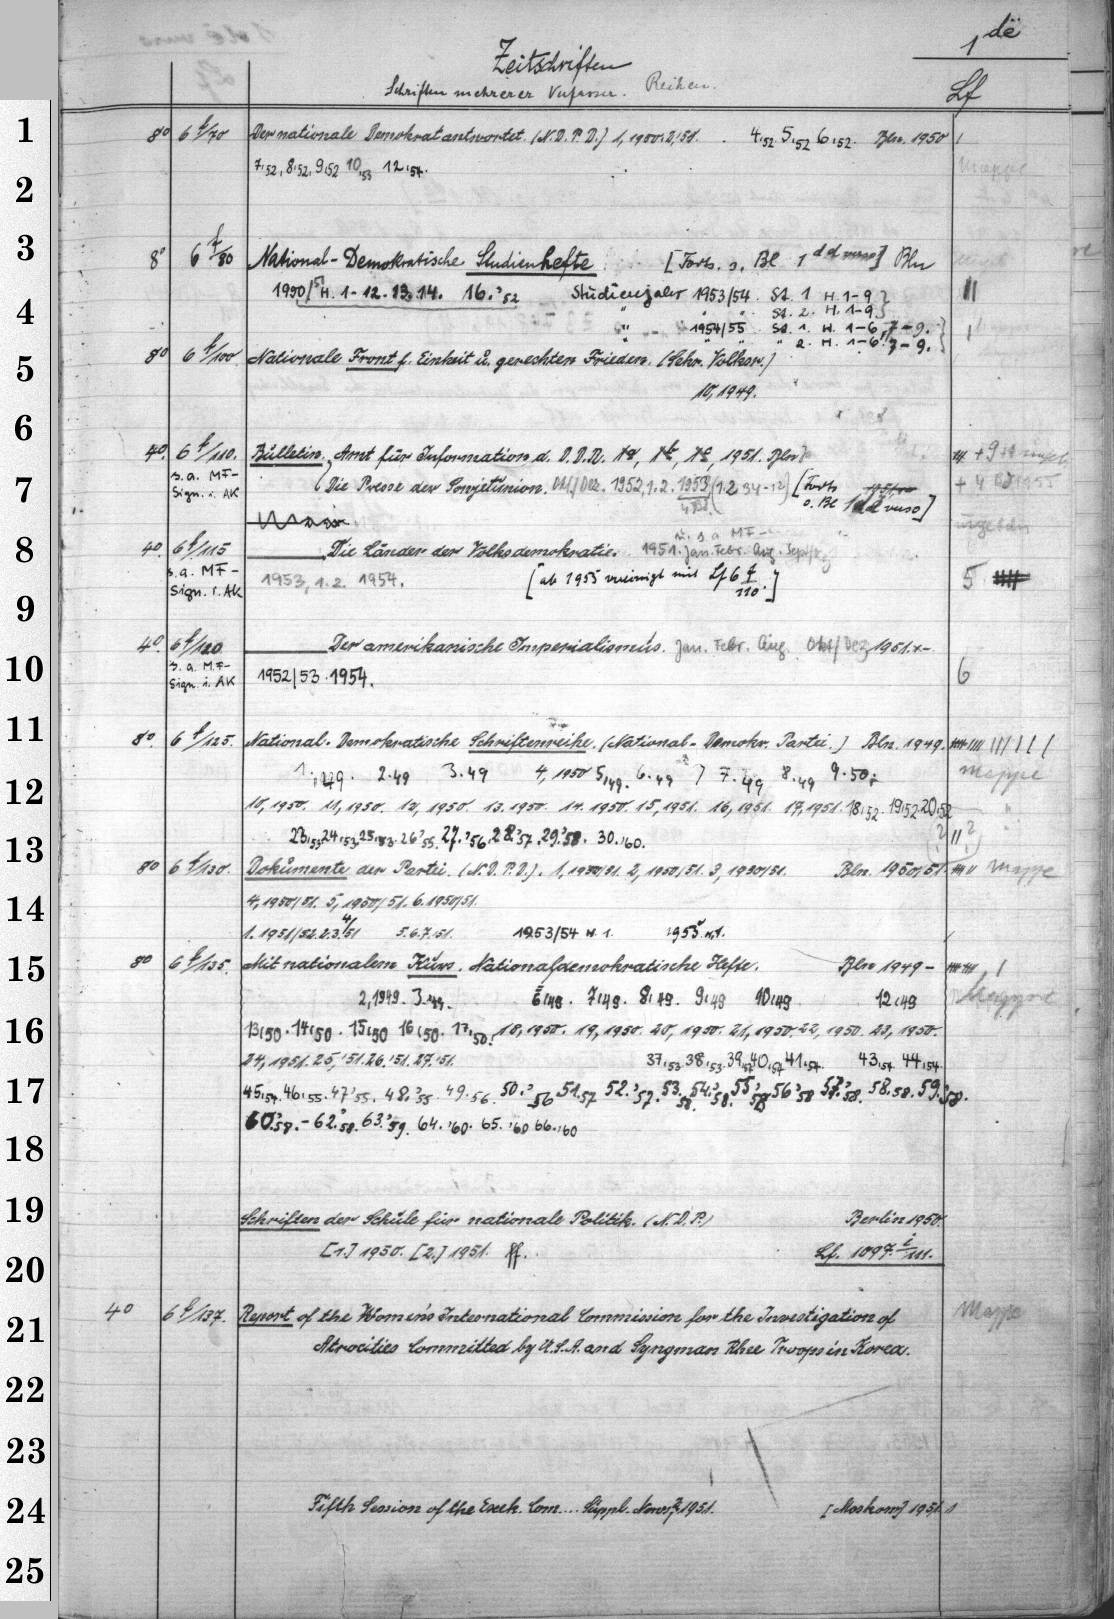 1 dë
Zeitschriften
Schriften mehrerer Verfasser. Reihen.
Lf
1
8° 6 f/70 Der nationale Demokrat antwortet. (N.D.P.D.) 1, 1950. 2, 51. 4,52. 5,52 6,52. Bln. 1950
7,52, 8,52, 9,52 10,53 12,54.
Mappe
2
3
8° 6 f/80 National-Demokratische Studienhefte [Forts. s. Bl 1 dd verso] Bln
1950/51 H. 1-12. 13. 14. 16.'52 Studienjahr 1953/54. St. 1 H. 1-9}
4
" " St. 2. H. 1-9}
" 1954/55 St. 1. H. 1-6, 7-9.
" " " " 2. H. 1-6, 7-9.
5
8° 6 f/100 Nationale Front f. Einheit u. gerechten Frieden. (Sekr. Volksr.)
10, 1949.
6
4° 6 f/110. Bulletin. Amt für Information d. D.D.R. 1951. Bln
s. a. MF-
Sign. i. AK
7
Die Presse der Sowjetunion. Okt/Dez. 1952, 1.2. 1953 [Forts
s. Bl 1 dd verso]
8
4° 6 f/115 Die Länder der Volksdemokratie. 1951. Jan. Febr. Aug. Sept/
s. a. MF-
Sign. i. AK
1953, 1.2. 1954. [ab 1955 vereinigt mit Lf 6 f/110.] 5
9
4° 6 f/120 Der amerikanische Imperialismus. Jan. Febr. Aug. Okt/Dez 1951.+-
s. a. MF-
Sign. i. AK
10
1952/53. 1954. 6
11
8° 6 f/125. National-Demokratische Schriftenreihe. (National-Demokr. Partei.) Bln. 1949.
1.,49. 2.49 3.49 4, 1950 5,49. 6.49 7.49 8.49 9.50. Mappe
12
10, 1950. 11, 1950. 12, 1950. 13. 1950. 14. 1950. 15, 1951. 16, 1951. 17, 1951. 18,52. 19,52. 20,52
13
23,53 24,53 25,53. 26'55. 27.'56 28'57. 29.'58. 30.'60.
8° 6 f/130. Dokumente der Partei. (N.D.P.D.). 1, 1950/51. 2, 1950/51. 3, 1950/51. Bln. 1950/51. Mappe
14
4, 1950/51. 5, 1950/51. 6. 1950/51.
1. 1951/52. 2.3.4/51 5.6.7.51. 1953/54 H. 1. 1955 H. 1.
15
8° 6 f/135. Mit nationalem Kurs. Nationaldemokratische Hefte. Bln 1949-
2, 1949. 3.49. 6,49. 7,49. 8,49. 9,49 10,49 12,49
16
13,50. 14,50. 15,50 16,50. 17,50. 18, 1950. 19, 1950. 20, 1950. 21, 1950. 22, 1950. 23, 1950.
24, 1951. 25,'51. 26.'51. 27.'51. 37,53. 38,53. 39, 40, 41,54. 43,54 44,54.
17
45,54. 46,55. 47'55. 48,'55 49.56. 50.'56 51.57 52.'57. 53.58. 54.'58. 55'58 56'58 57.'58. 58.58. 59.'58.
60.58. - 62.58. 63.'59. 64.'60. 65.'60 66.'60
18
19
Schriften der Schule für nationale Politik. (N.D.P.) Berlin 1950.
[1.] 1950. [2.] 1951. ff. Lf. 1097 i/111.
20
4° 6 f/137. Report of the Women's International Commission for the Investigation of Mappe
21
Atrocities Committed by U.S.A. and Syngman Rhee Troops in Korea.
22
23
24
Fifth Session of the Exek. Com.... Suppl. News, 7, 1951. [Moskow] 1951.
25